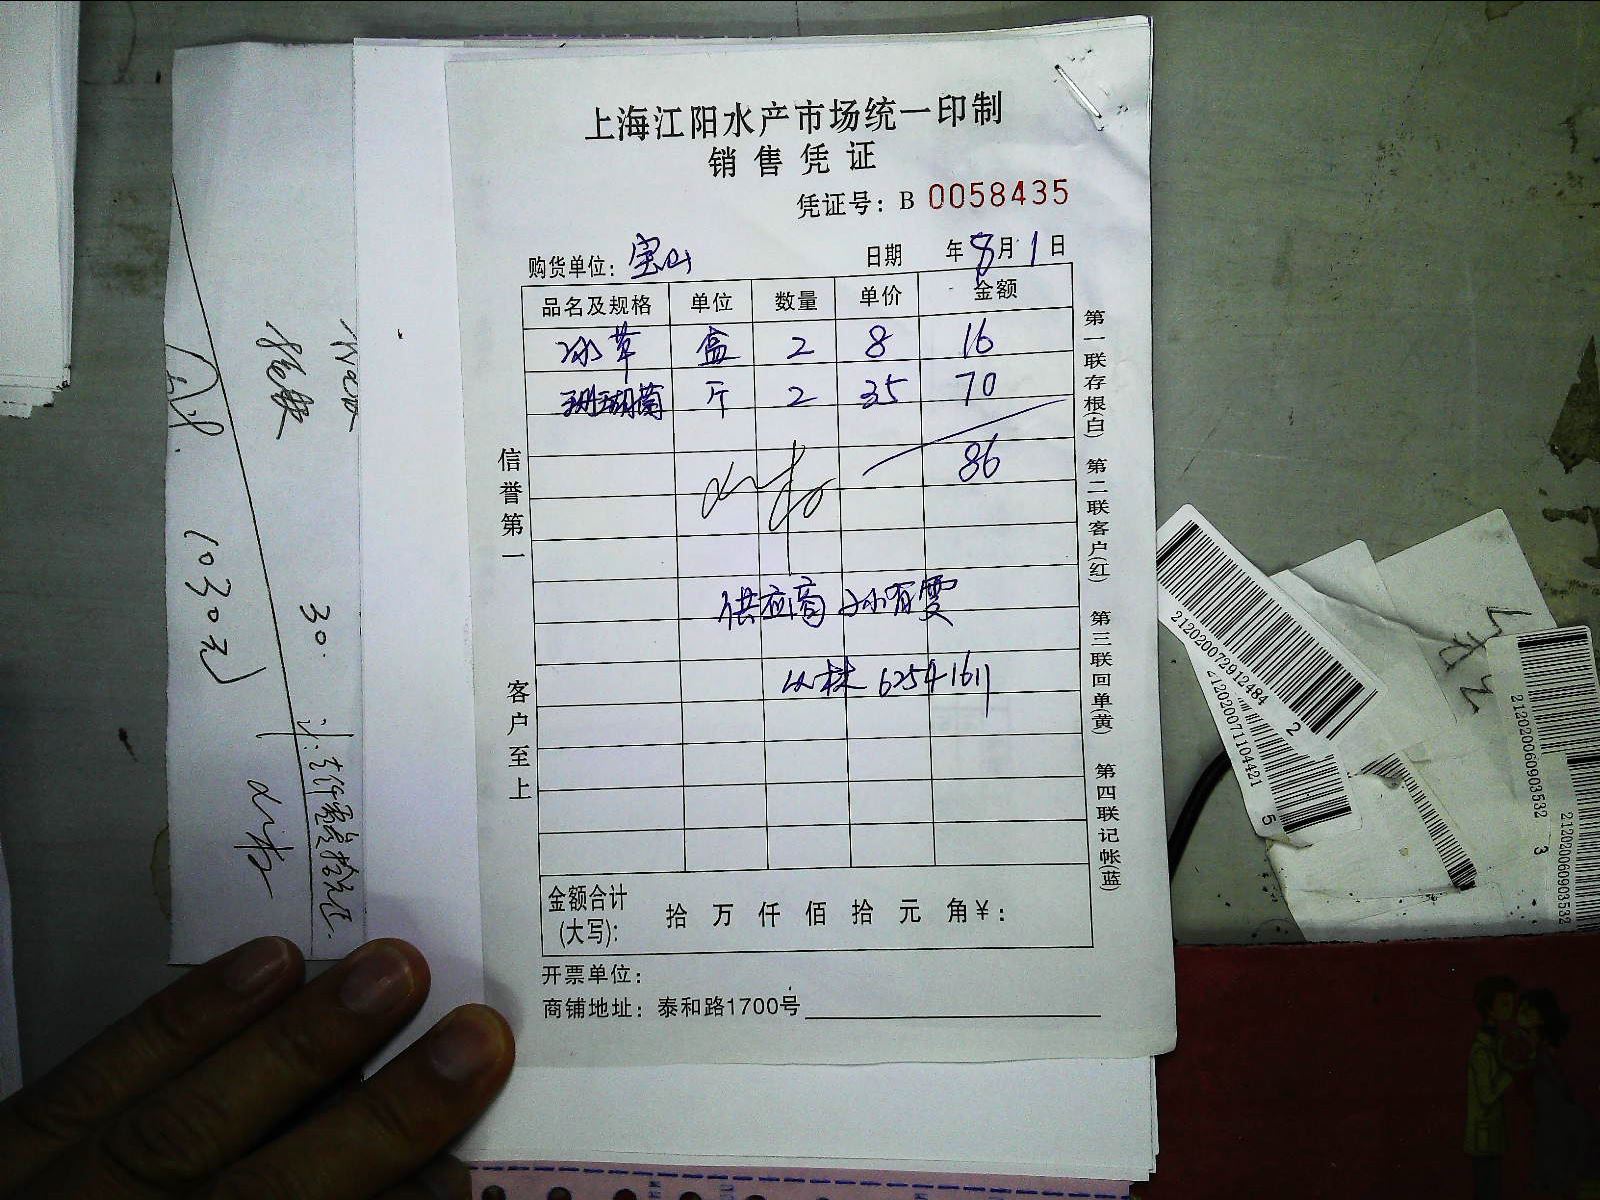 上海江阳水产市场统一印制
销售凭证
凭证号：B 0058435
购货单位：宝山 日期 年8月1日
品名及规格 单位 数量 单价 金额
冰草 盒 2 8 16
珊瑚菌 斤 2 35 70
86
供应商 孙有雯
62541611
金额合计(大写)： 拾 万 仟 佰 拾 元 角 ￥：
开票单位：
商铺地址：泰和路1700号
信誉第一 客户至上
第一联存根(白) 第二联客户(红) 第三联回单(黄) 第四联记帐(蓝)
1030元
30.
21202007291248​4 2
2120200711044​21 5
2120200609035​32 3
2120200609035​32